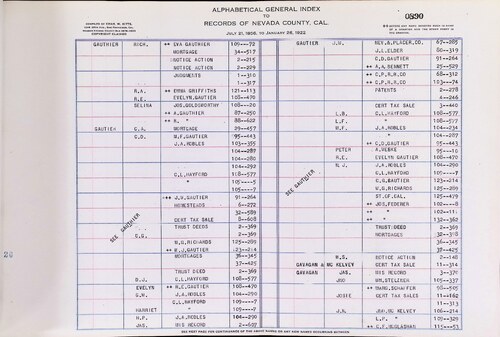 ALPHABETICAL GENERAL INDEX
TO
RECORDS OF NEVADA COUNTY, CAL.
JULY 21, 1856, TO JANUARY 26, 1922
0890
COPYRIGHT CLAIMED
GAUTHIER RICH. ++ EVA GAUTHIER 109---72 GAUTIER J.W. NEV.& PLACER,CO. 67---285
MORTGAGE 34---517 J.L.ELDER 88---319
NOTICE ACTION 2---215 C.D.GAUTIER 91---264
NOTICE ACTION 2---209 ++ A.A.BENNETT 25---529
JUDGMENTS 1---310 ++ C.P.R.R.CO 68---312
1---317 ++ C.P.R.R.CO 103---74
R.A. ++ EMMA GRIFFITHS 121---113 PATENTS 2---278
R.E. EVELYN.GAUTIER 108---470 4---246
SELINA JOS.GOLDSWORTHY 108---20 CERT TAX SALE 3---440
++ A.GAUTHIER 87---250 L.B. C.L.HAYFORD 108---577
++ R. " 88---602 L.F. " 108---577
GAUTIER C.A. MORTGAGE 29---457 M.F. J.A.ROBLES 104---234
C.D. M.F.GAUTIER 95---443 " 104---287
J.A.ROBLES 103---355 ++ C.D.GAUTIER 95---443
104---287 PETER A.WEBKE 95---10
104---288 R.E. EVELYN GAUTIER 108---470
104---292 R.J. J.A.ROBLES 104---290
C.L.HAYFORD 108---577 C.L.HAYFORD 105---7
" 105---5 C.G.GAUTIER 123---214
105---7 W.G.RICHARDS 125---209
++ J.W.GAUTIER 91---264 ST.OF.CAL. 125---479
HOMESTEADS 6---272 ++ JOS,FEDERER 102---8
32---589 ++ " 102---11
SEE GAUTHIER CERT TAX SALE 8---608 SEE GAUTHIER ++ " 102---362
TRUST DEEDS 2---369 TRUST DEED 2---369
C.G. 2---369 MORTGAGES 32---378
W.G.RICHARDS 125---209 36---345
++ R.J.GAUTIER 123---214 37---425
MORTGAGES 36---345 M.S. NOTICE ACTION 2---148
37---425 GAVAGAN & MC KELVEY CERT TAX SALE 11---314
TRUST DEED 2---369 GAVAGAN JAS. HIS RECORD 3---371
D.J. C.L.HAYFORD 108---577 JOE WM.STELEKER 105---337
EVELYN ++ R.E.GAUTIER 108---470 ++ MARG.SCHAFFER 98---505
G.W. J.A.ROBLES 104---290 JOSIE CERT TAX SALES 11---162
C.L.HAYFORD 105---7 11---313
HARRIET " 105---7 J.R.
H.P. J.A.ROBLES 104---290 L.F. " 105---329
JAS. HIS RECORD 2---607 ++ C.F.MCGLASHAN 115---53
26